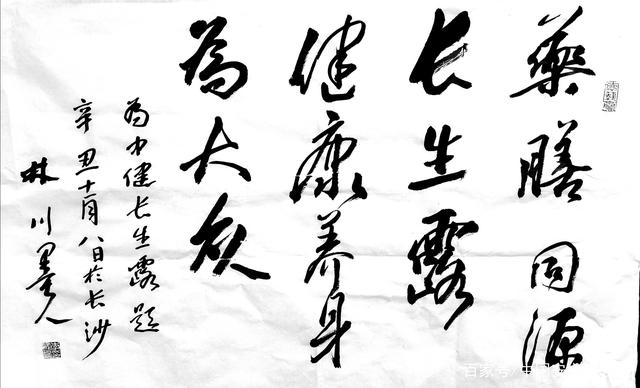 藥膳同源
长生露
健康养身
為大众
為中健长生露题
辛丑十一月八日於长沙
林川墨人